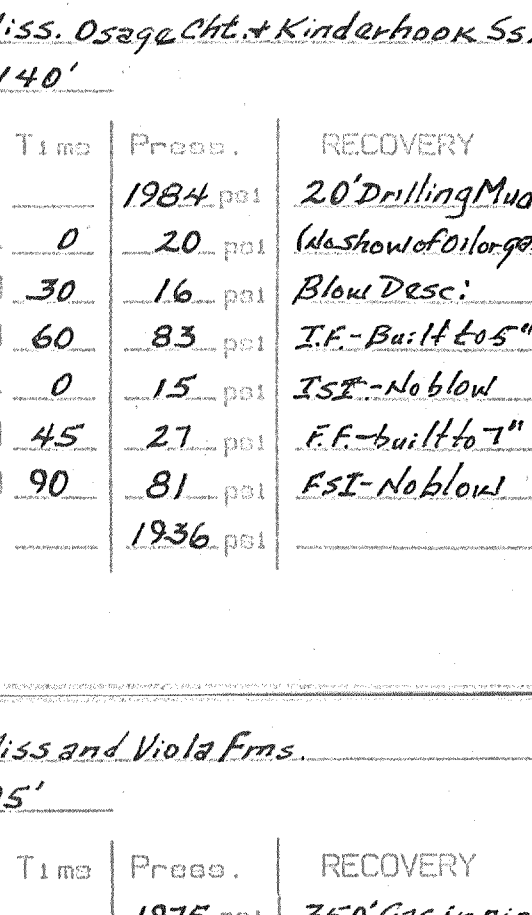 iss. Osage Cht. & Kinderhook Ss.
140'
Time Press. RECOVERY
1984 psi 20' Drilling Mud
0 20 psi (No show of Oil or gas
30 16 psi Blow Desc:
60 83 psi I.F.-Built to 5"
0 15 psi ISI.-No blow
45 27 psi F.F.-built to 7"
90 81 psi FSI-No blow
1936 psi
iss and Viola Fms.
5'
Time Press. RECOVERY
1975 psi 350' Gas in